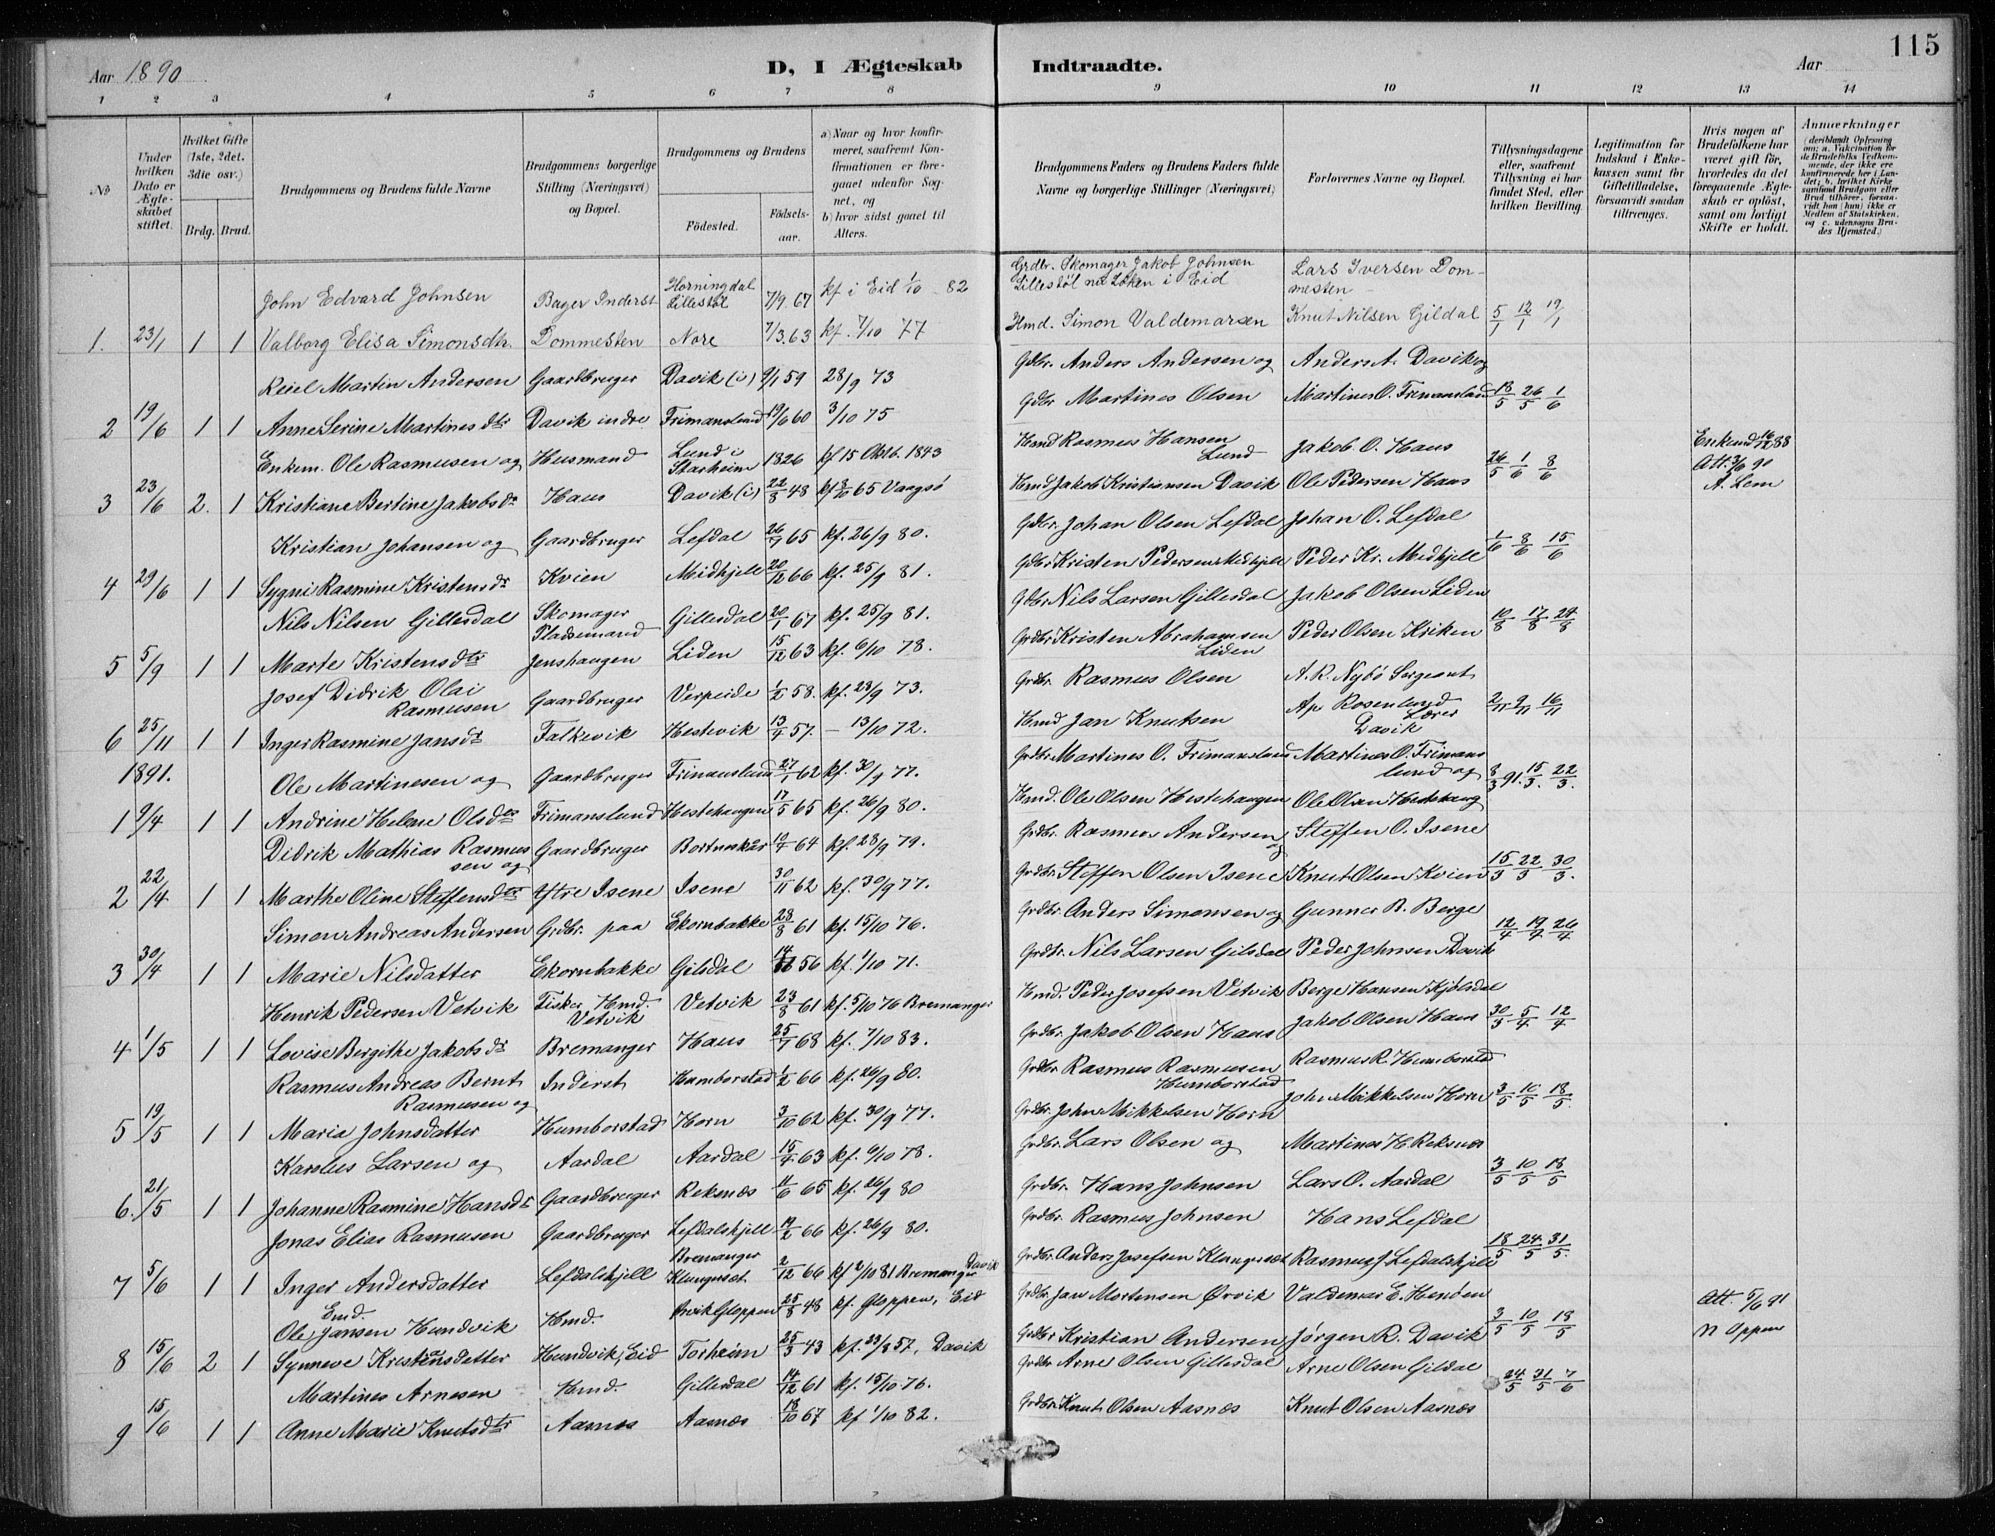 115
Aar 1890
D, I Ægteskab Indtraadte.
Aar
1 2 3 4 5 6 7 8 9 10 11 12 13 14
No
Under hvilken Dato er Ægteskabet stiftet.
Hvilket Gifte (1ste, 2det. 3die osv.)
Brdg. Brud.
Brudgommens og Brudens fulde Navne
Brudgommens borgerlige Stilling (Næringsvei) og Bopæl.
Brudgommens og Brudens
Födested.
Födselsaar.
a) Naar og hvor konfirmeret, saafremt Konfirmationen er foregaaet udenfor Sognet, og
b) hvor sidst gaaet til Alters.
Brudgommens Faders og Brudens Faders fulde Navne og borgerlige Stillinger (Næringsvei)
Forlovernes Navne og Bopæl.
Tillysningsdagene eller, saafremt Tillysning ei har fundet Sted, efter hvilken Bevilling
Legitimation for Indskud i Enkekassen samt for Giftetilladelse, forsaavidt saadan tiltrænges.
Hvis nogen af Brudefolkene har været gift för, hvorledes da det foregaaende Ægteskab er oplöst, samt om lovligt Skifte er holdt.
Anmærkninger (deriblandt Oplysning om: a. Vakcination for de Brudefolks Vedkommende, der ikke ere konfirmerede her i Landet; b. hvilket Kirkesamfund Brudgom eller Brud tilhörer, forsaavidt han (hun) ikke er Medlem af Statskirken, og c. udensogns Brudes Hjemsted.)
John Edvard Johnsen Bager Inderst Horningdal Lillestöl 7/9. 67 kf i Eid 1/10 82 Grdbr. Skomager Jakob Johnsen Lillestöl i Eid Lars Iversen Dommesten
1. 23/1 1 1 Valborg Elisa Simonsdtr. Dommesten Nore 7/3.63 kf. 7/10 77 Hmd. Simon Valdemarsen Knut Nilsen Gildal 5/1 12/1 19/1
Reiel Martin Andersen Gaardbruger Davik (i) 9/1 59 28/9 73 Gdbr. Anders Andersen og Anders A. Davik og
2 19/6 1 1 Anne Serine Martinesdtr Davik indre Frimanslund 19/6 60 3/10 75 Gdbr Martines Olsen Martines O. Frimanslund 18/5 26/5 1/6
Enkem. Ole Rasmusen og Husmand Lund i Starheim 1826 kf 15 Oktb. 1843 Hmd Rasmus Hansen Lund Jakob O. Haus Enkemd 16/12 88
3 23/6 2. 1 Kristiane Bertine Jakobsdr Haus Davik (i) 22/8 48 kf 8/10 65 Vaagsö Hmd Jakob Kristiansen Davik Ole Pedersen Haus 26/5 1/6 8/6 Att. 3/6 90 A. Lem
Kristian Johansen og Gaardbruger Lefdal 26/7 65 kf. 26/9 80. Gdbr. Johan Olsen Lefdal Johan O. Lefdal
4 29/6 1 1 Sygni Rasmine Kristensdr Kvien Midhjell 20/12 66 kf. 25/9 81. Gdbr Kristen Pedersen Midhjell Peder Kr. Midhjell 1/6 8/6 15/6
Nils Nilsen Gillesdal Skomager Pladsemand Gillesdal 20/1 67 kf. 25/9 81. Gdbr Nils Larsen Gillesdal Jakob Olsen Liden
5 5/9 1 1 Marte Kristensdtr Jenshaugen Liden 15/12 63 kf. 6/10 78. Grdbr Kristen Abrahamsen Liden Peder Olsen Kriken 10/8 17/8 24/8
Josef Didrik Olai Rasmusen Gaardbruger Verpeide 1/2 58. kf. 28/9 73. Grdbr. Rasmus Olsen A. R. Nybö Sergeant
6 25/11 1 1 Inger Rasmine Jansdr Falkevik Hestevik 13/4 57. — 13/10 72. Hmd Jan Knutsen Ap Rosenlund Lærer Davik 2/11 9/11 16/11
1891.
Ole Martinesen og Gaardbruger Frimanslund 27/1 62 kf. 30/9 77. Grdbr Martines O. Frimanslund Martines O. Frimanslund og
1 9/4 1 1 Andrine Helene Olsdtr Frimanslund Hestehaugen 17/5 65 kf. 26/9 80. Hmd. Ole Olsen Hestehaugen Ole Olsen Hestehaug 8/3 91. 15/3. 22/3.
Didrik Mathias Rasmussen og Gaardbruger Bortnskår 19/4 64 kf. 28/9 79. Grdbr. Rasmus Andersen og Steffen O. Isene
2 22/4 1 1 Marthe Oline Steffensdtr Yttre Isene Isene 30/11 62 kf. 30/9 77. Grdbr. Steffen Olsen Isene Knut Olsen Kvien 15/3 22/3 30/3.
Simon Andreas Andersen Grdbr. paa Ekornbakke 28/8 61 kf. 15/10 76. Grdbr. Anders Simonsen og Gunner B. Berge
3 30/4 1 1 Marie Nilsdatter Ekornbakke Gilsdal 56 kf. 1/10 71. Grdbr. Nils Larsen Gilsdal Peder Johnsen Davik 12/4 19/4 26/4
Henrik Pedersen Vetvik Fisker Hmd. Vetvik Vetvik 23/8 61 kf. 5/10 76 Bremanger Hmd. Peder Josefsen Vetvik Berge Hansen Kjölsdal
4 1/5 1 1 Lovise Bergithe Jakobsdr Bremanger Haus 25/7 68 kf. 7/10 83. Grdbr. Jakob Olsen Haus Jakob Olsen Haus 30/3 5/4 12/4
Rasmus Andreas Bernt Rasmusen og Inderst Humborstad 1/2 66 kf. 26/9 80. Grdbr. Rasmus Rasmusen Humborstad Rasmus R. Humborstad
5 19/5 1 1 Maria Johnsdatter Humborstad Horn 3/10 62 kf. 30/9 77. Grdbr. John Mikkelsen Horn John Mikkelsen Horn 3/5 10/5 18/5.
Karolus Larsen og Aardal Aardal 15/4 63 kf. 6/10 78. Grdbr. Lars Olsen og Martines H. Reksnes
6. 21/5 1 1 Johanne Rasmine Hansdr Gaardbruger Reksnæs 11/6 65 kf. 26/9 80 Grdbr. Hans Johnsen Lars O. Aardal 3/5 10/5 18/5
Jonas Elias Rasmusen Gaardbruger Lefdalshjell 19/2 66 kf. 26/9 80. Grdbr. Rasmus Johnsen Hans Lefdal
7 5/6 1 1 Inger Andersdatter Lefdalshjell Bremanger Klungeset 2/12 66 kf 2/10 81 Bremanger Davik Grdbr. Anders Josefsen Klungesæt Rasmus J Lefdalshjell 18/5 24/5 31/5.
Emd. Ole Jansen Hundvik Hmd. Ørvik Gloppen 25/8 48 kf. Gloppen, Eid Grdbr. Jan Mortensen Ørvik Valdemar E. Henöen Att. 5/6 91
8 15/6 2 1 Synneve Kristensdatter Hundvik, Eid Torheim 25/3 43 kf. 23/8 57, Davik Grdbr Kristian Andersen Jørgen R. Davik 3/5 10/5 18/5 N Oppen
Martines Arnesen Hmd. Gillesdal 14/12 61 kf. 15/10 76. Grdbr Arne Olsen Gillesdal Arne Olsen Gildal
9 15/6 1 1 Anne Marie Knutsdtr Aasnes Aasnæs 18/10 67 kf 1/10 82. Grdbr. Knut Olsen Aasnæs Knut Olsen Aasnæs 24/5 31/5 7/6